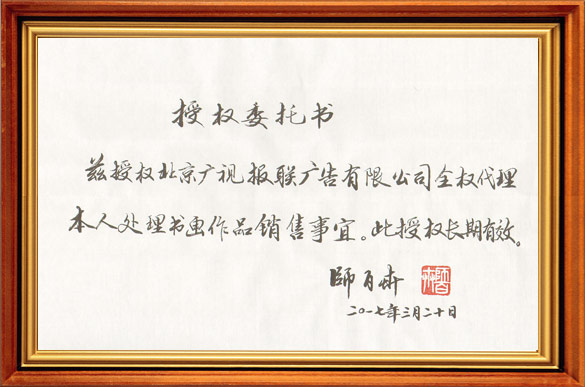 授权委托书
兹授权北京广视报联广告有限公司全权代理
本人处理书画作品销售事宜。此授权长期有效。
師百卉
二〇一七年三月二十日